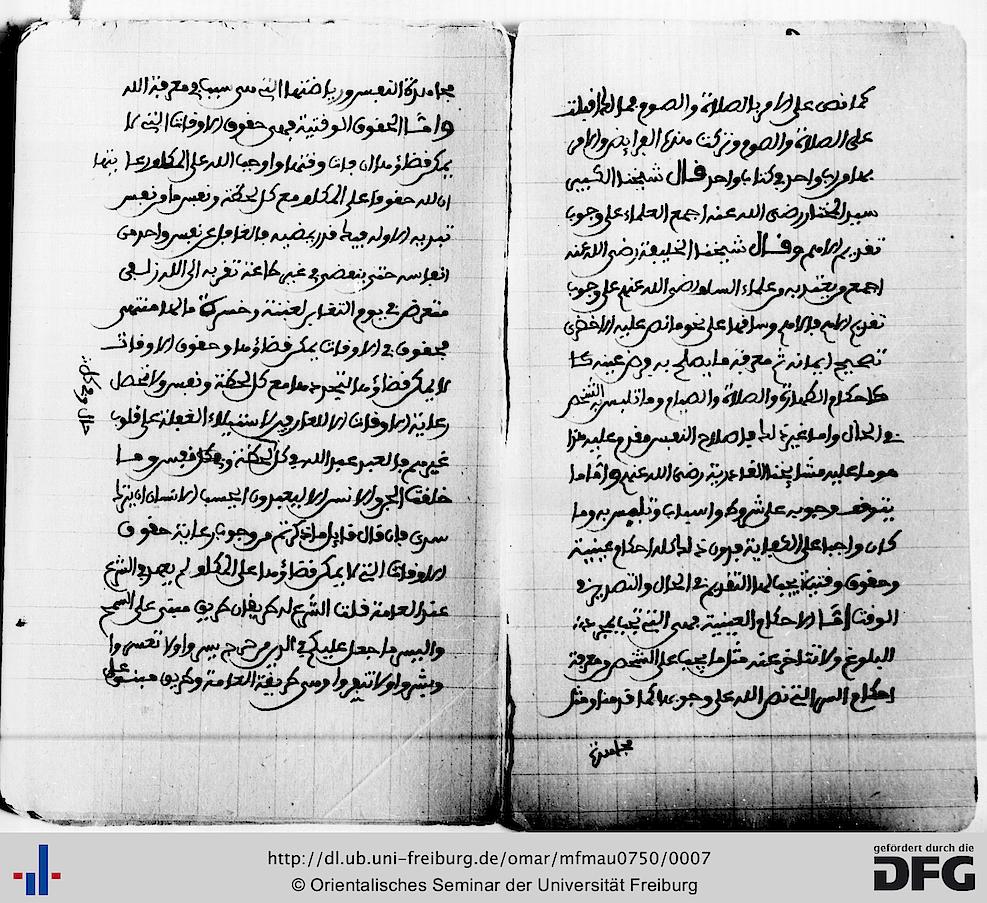 كما نص على الامر بالصلاة والصوم
على الصلاة والصوم وتركت منها الفرايض والامر
بها وربي واحد في كتاب واحد قال شيخنا الكبير
سيد المختار رضي الله عنه اجمع العلماء على وجوب
تقديم الاهم وقال شيخنا الخليفة رضي الله عنه
اجمع من يعتد به من علماء السلف رضي الله عنهم على وجوب
تقديم الاهم فالاهم وساقها على نحو ما نص عليه الاخضري
تصحيح ايمانه ثم معرفة ما يصلح به فرض عينه كا
كاحكام الطهارة والصلاة والصيام وما تلبس به الشخص
في الحال واما غير ذلك فاصلاح النفس مقدم عليه هذا
هو ما عليه مشايخنا القادرية رضي الله عنهم واما ما
يتوقف وجوبه على شروط واسباب وتلبس به وما
كان واجبا على الكفاية فدون ذلك كله احكام عينية
وحقوق وقتية يجب لها التقديم في الحال والتصدير في
الوقت اما الاحكام العينية فهي التي تجب بمجرد
البلوغ ولا تتاخر عنه مثل ما يجب على الشخص معرفة
احكام التي نص الله على وجوبها كما قدمنا ومثل
مجاهدة
مجاهدة النفس ورياضتها التي هي سبب في معرفة الله
واما الحقوق الوقتية فهي حقوق الاوقات التي لا
يمكن قضاؤها ان فات وقتها واوجب الله على المكلف رعايتها
ان لله حقوقا على المكلف مع كل لحظة ونفس ما من نفس
تبديه الا وله فيك قدر يمضيه فالغافل عن نفس واحد من
انفاسه حتى ينقضي في غير طاعة تقربه الى الله زلفى
متعرض في يوم التغابن لغبنة وحسرة ما لها منتهى
فحقوق في الاوقات يمكن قضاؤها وحقوق الاوقات
لا يمكن قضاؤها لتجددها مع كل لحظة ونفس ولا تحصل
رعاية الاوقات الا للعارفين لاستيلاء الغفلة على قلوب
غيرهم فالعبد عبد الله في كل لحظة وفي كل نفس وما
خلقت الجن والانس الا ليعبدون ايحسب الانسان ان يترك
سدى فان قال قايل ما ذكرتم من وجوب رعاية حقوق
الاوقات التي لا يمكن قضاؤها على المكلف لم يعهد في الشرع
عند العامة قلنا الشرع له طريقان طريق مبني على السمح
واليسر ما جعل عليكم في الدين من حرج يسروا ولا تعسروا
وبشروا ولا تنفروا وهي طريقة العامة وطريق مبني على
حال وفي كل
http://dl.ub.uni-freiburg.de/omar/mfmau0750/0007
© Orientalisches Seminar der Universität Freiburg
gefördert durch die
DFG